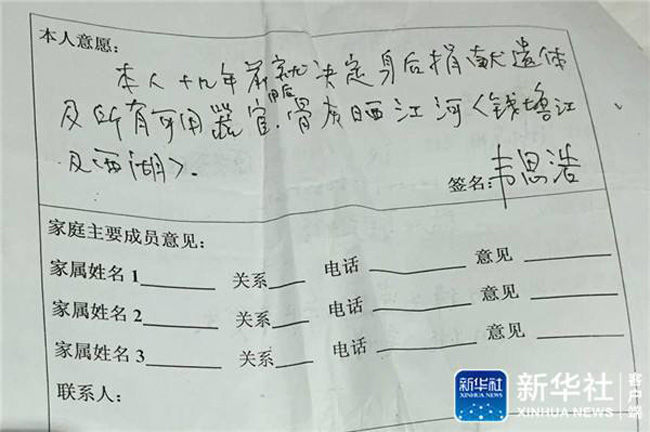 本人意愿：
本人十九年前就决定身后捐献遗体
及所有可用器官.用后骨灰晒江河<钱塘江
及西湖>.
签名：韦思浩
家庭主要成员意见：
家属姓名 1______ 关系____ 电话________ 意见______
家属姓名 2______ 关系____ 电话________ 意见______
家属姓名 3______ 关系____ 电话________ 意见______
联系人：
新华社
XINHUA NEWS
新华社
XINHUA NEWS
客户端